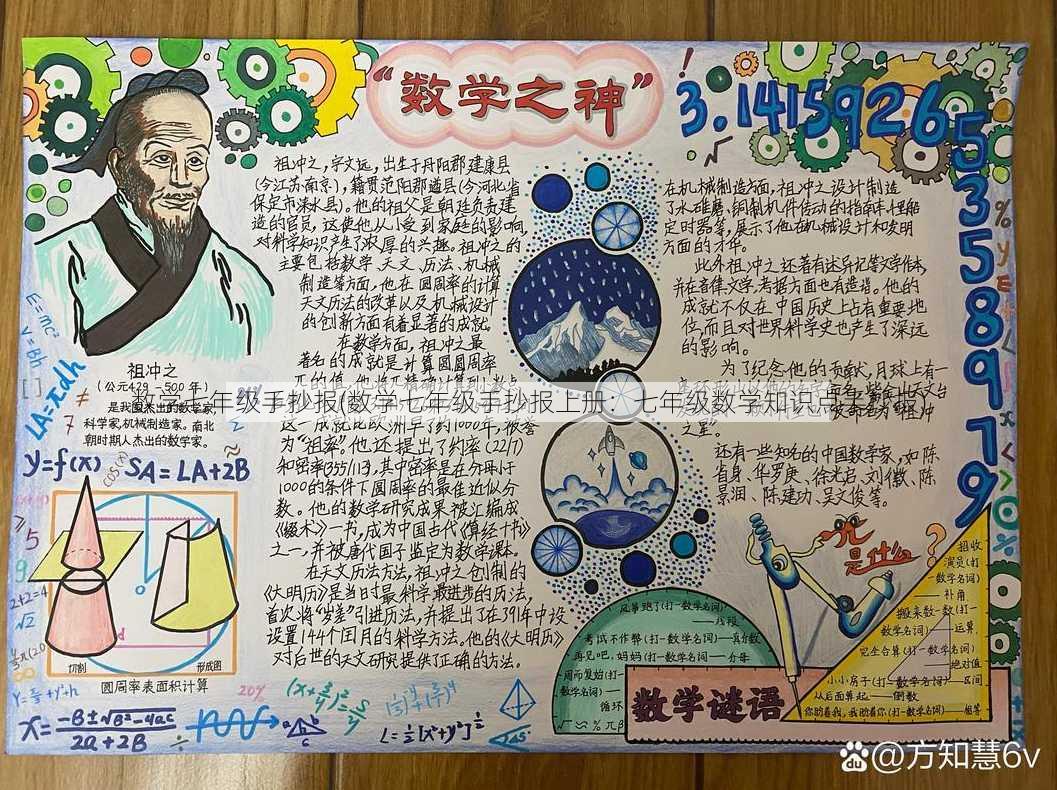 “数学之神”
3.14159265358979
祖冲之，字文远，出生于丹阳郡建康县
(今江苏南京)，籍贯范阳郡遒县(今河北省
保定市涞水县)。他的祖父是朝廷负责建
造的官员，这使他从小受到家庭的影响，
对科学知识产生了浓厚的兴趣。祖冲之的
主要包括数学、天文、历法、机械
制造等方面，他在圆周率的计算
天文历法的改革以及机械设计
的创新方面有着显著的成就。
在数学方面，祖冲之最
著名的成就是计算圆周率
数学七年级手抄报(数学七年级手抄报上册：七年级数学知识点手抄报)
这一成就比欧洲早了约1000年，被誉
为“祖率”。他还提出了约率(22/7)
和密率355/113，其中密率是在分母小于
1000的条件下圆周率的最佳近似分
数。他的数学研究成果被汇编成
《缀术》一书，成为中国古代《算经十书》
之一，并被唐代国子监定为数学课本。
在天文历法方法，祖冲之创制的
《大明历》是当时最科学最进步的历法，
首次将“岁差”引进历法，并提出了在391年中设
设置144个闰月的科学方法。他的《大明历》
对后世的天文研究提供了正确的方法。
在机械制造方面，祖冲之设计制造
了水碓磨、铜制机件传动的指南车、千里船
定时器等，展示了他在机械设计和发明
方面的才华。
此外祖冲之还著有述异记等文学作品，
并在音律、文学、考据方面也有造诣。他的
成就不仅在中国历史上占有重要地
位，而且对世界科学史也产生了深远
的影响。
为了纪念他的贡献，月球上有一
之星”。
还有一些知名的中国数学家，如陈
省身、华罗庚、徐光启、刘徽、陈
景润、陈建功、吴文俊等。
祖冲之
(公元429-500年)
是我国杰出的数学家
科学家，机械制造家。南北
朝时期人杰出的数学家。
E=mc²
V=Bh
LA=πdh
y=f(x)
cos(x)
SA=LA+2B
2+2=4
√2
切割
形成图
圆周率表面积计算
20%
L=½[x²+y²]½
45°
一元是什么？
风筝跑了(打一数学名词)
——线段
考试不作弊(打一数学名词)——真分数
再见吧，妈妈(打一数学名词)——分母
一周而复始(打一
数学名词)——
循环
招收
演员(打
一数学名词)
——补角
搬来数一数(打一
数学名词)——运算
完全合算(打一数学名词)
——绝对值
小小房子(打一数学名词)——区间
从后面算起——倒数
你盼着我，我盼着你(打一数学名词)——相等
数学谜语
Bai du @方知慧6v